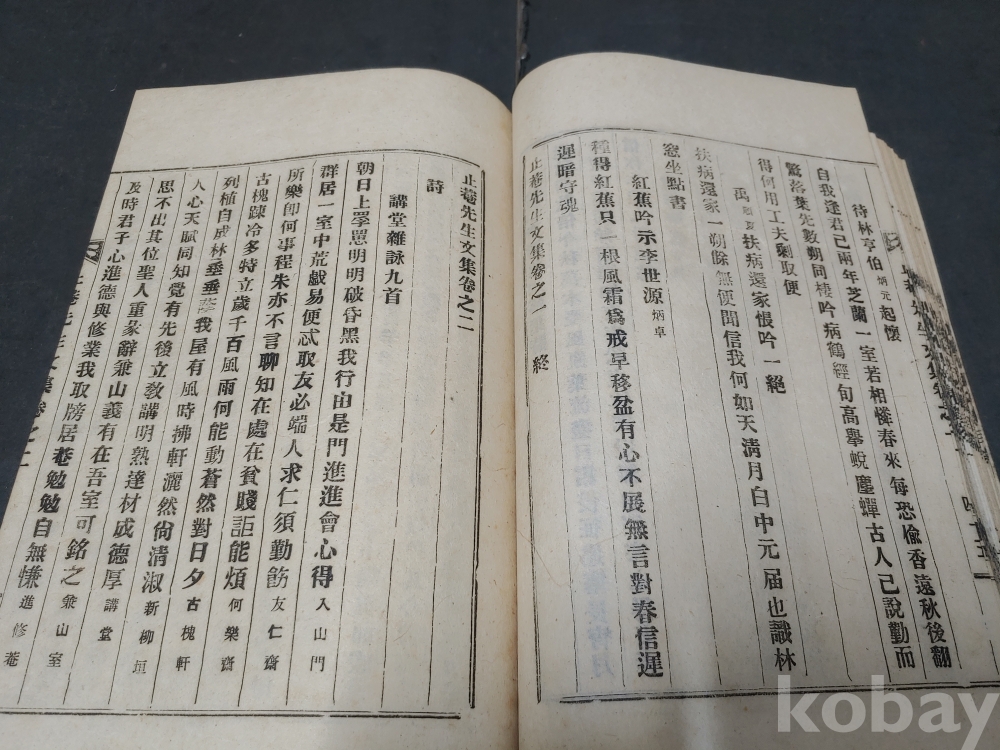 待林亨伯炳元起懷
自我逢君已兩年芝蘭一室若相憐春來每恐愉香遠秋後翻
驚落葉先數朔同棲吟病鶴經旬高擧蛻塵蟬古人已說勤而
得何用工夫剩取便
禹扶病還家恨吟一絕
扶病還家一朔餘無便聞信我何如天淸月白中元届也識林
窓坐點書
紅蕉吟示李世源炳卓
種得紅蕉只一根風霜爲戒早移盆有心不展無言對春信遲
遲暗守魂
止菴先生文集卷之一 終
止菴先生文集卷之二
詩
講堂雜詠九首
朝日上罘罳明明破昏黑我行由是門進進會心得入山門
群居一室中荒戱易便忒取友必端人求仁須勤飭友仁齋
所樂卽何事程朱亦不言聊知在處在貧賤詎能煩何樂齋
古槐踈冷多特立歲千百風雨何能動蒼然對日夕古槐軒
列植自成林垂垂我屋有風時拂軒灑然尙淸淑新柳垣
人心天賦同知覺有先後立敎講明熟達材成德厚講堂
思不出其位聖人重彖辭兼山義有在吾室可銘之兼山室
及時君子心進德與修業我取牓居菴勉勉自無慊進修菴
止菴先生文集卷之二
kobay